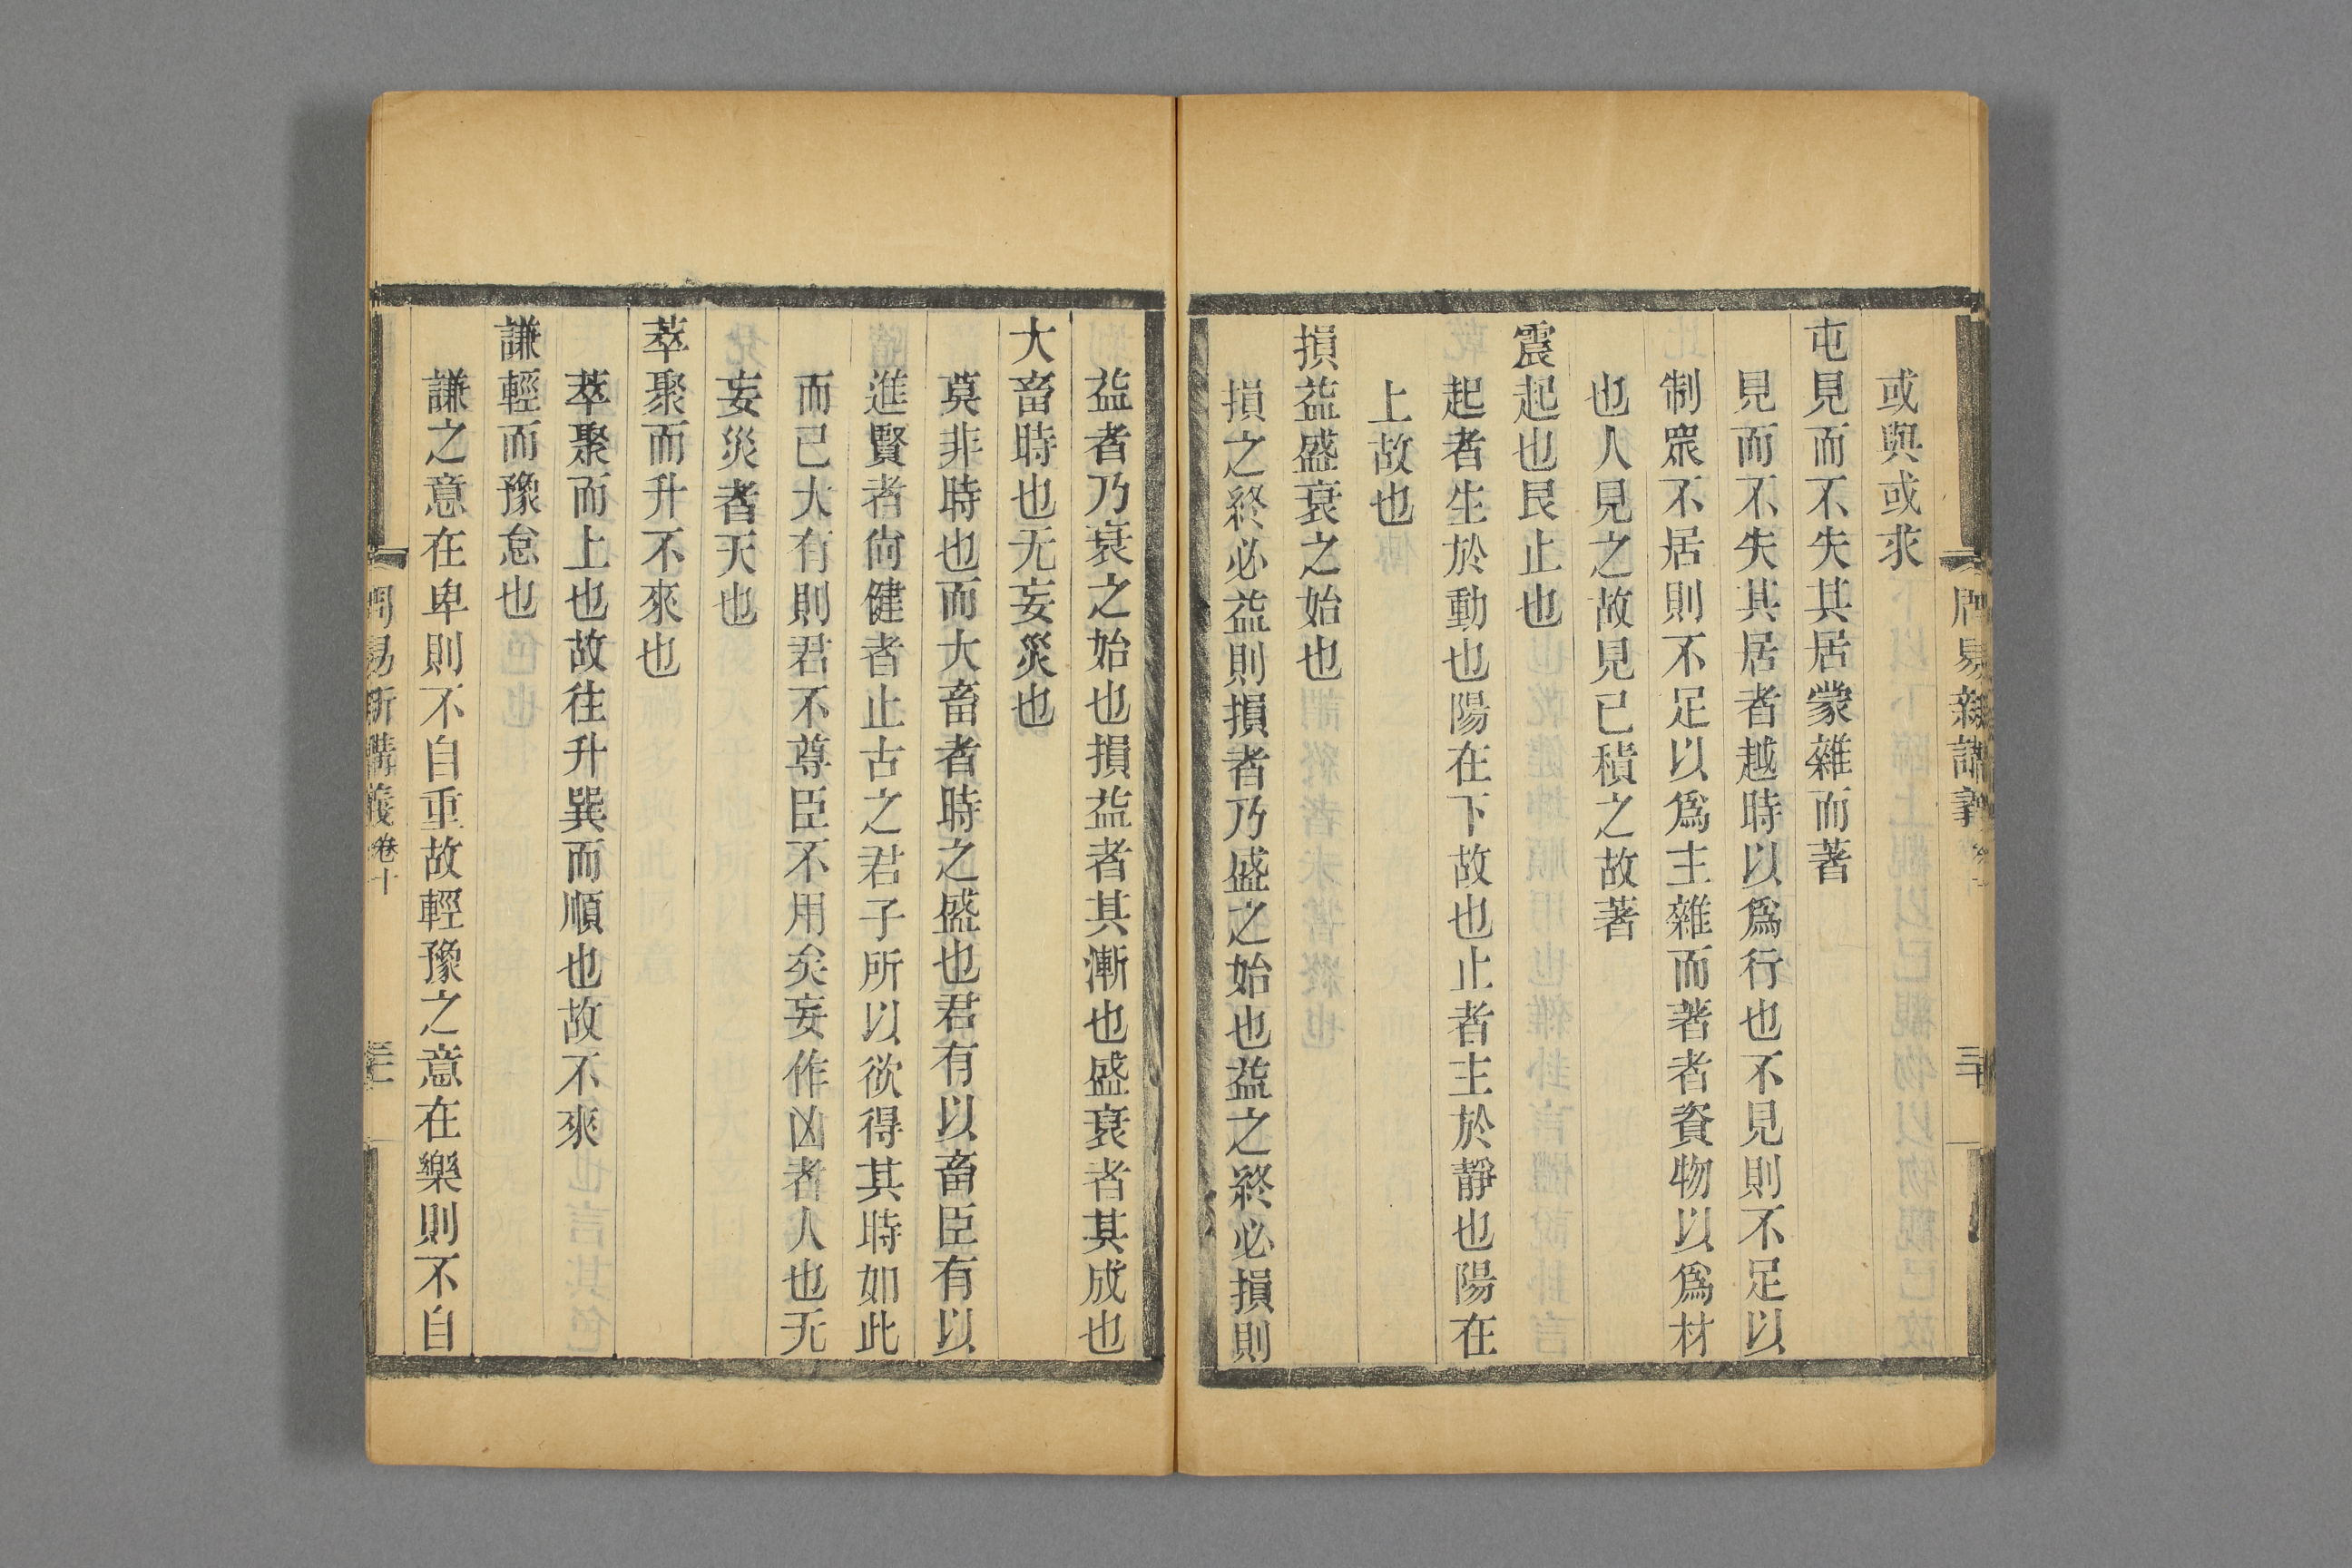 或與或求
屯見而不失其居蒙雜而著
見而不失其居者越時以爲行也不見則不足以
制眾不居則不足以爲主雜而著者資物以爲材
也人見之故見已積之故著
震起也艮止也
起者生於動也陽在下故也止者主於靜也陽在
上故也
損益盛衰之始也
損之終必益則損者乃盛之始也益之終必損則
益者乃衰之始也損益者其漸也盛衰者其成也
大畜時也无妄災也
莫非時也而大畜者時之盛也君有以畜臣有以
進賢者尙健者止古之君子所以欲得其時如此
而已大有則君不尊臣不用矣妄作凶者人也无
妄災者天也
萃聚而升不來也
萃聚而上也故往升巽而順也故不來
謙輕而豫怠也
謙之意在卑則不自重故輕豫之意在樂則不自
周易新講義 卷十